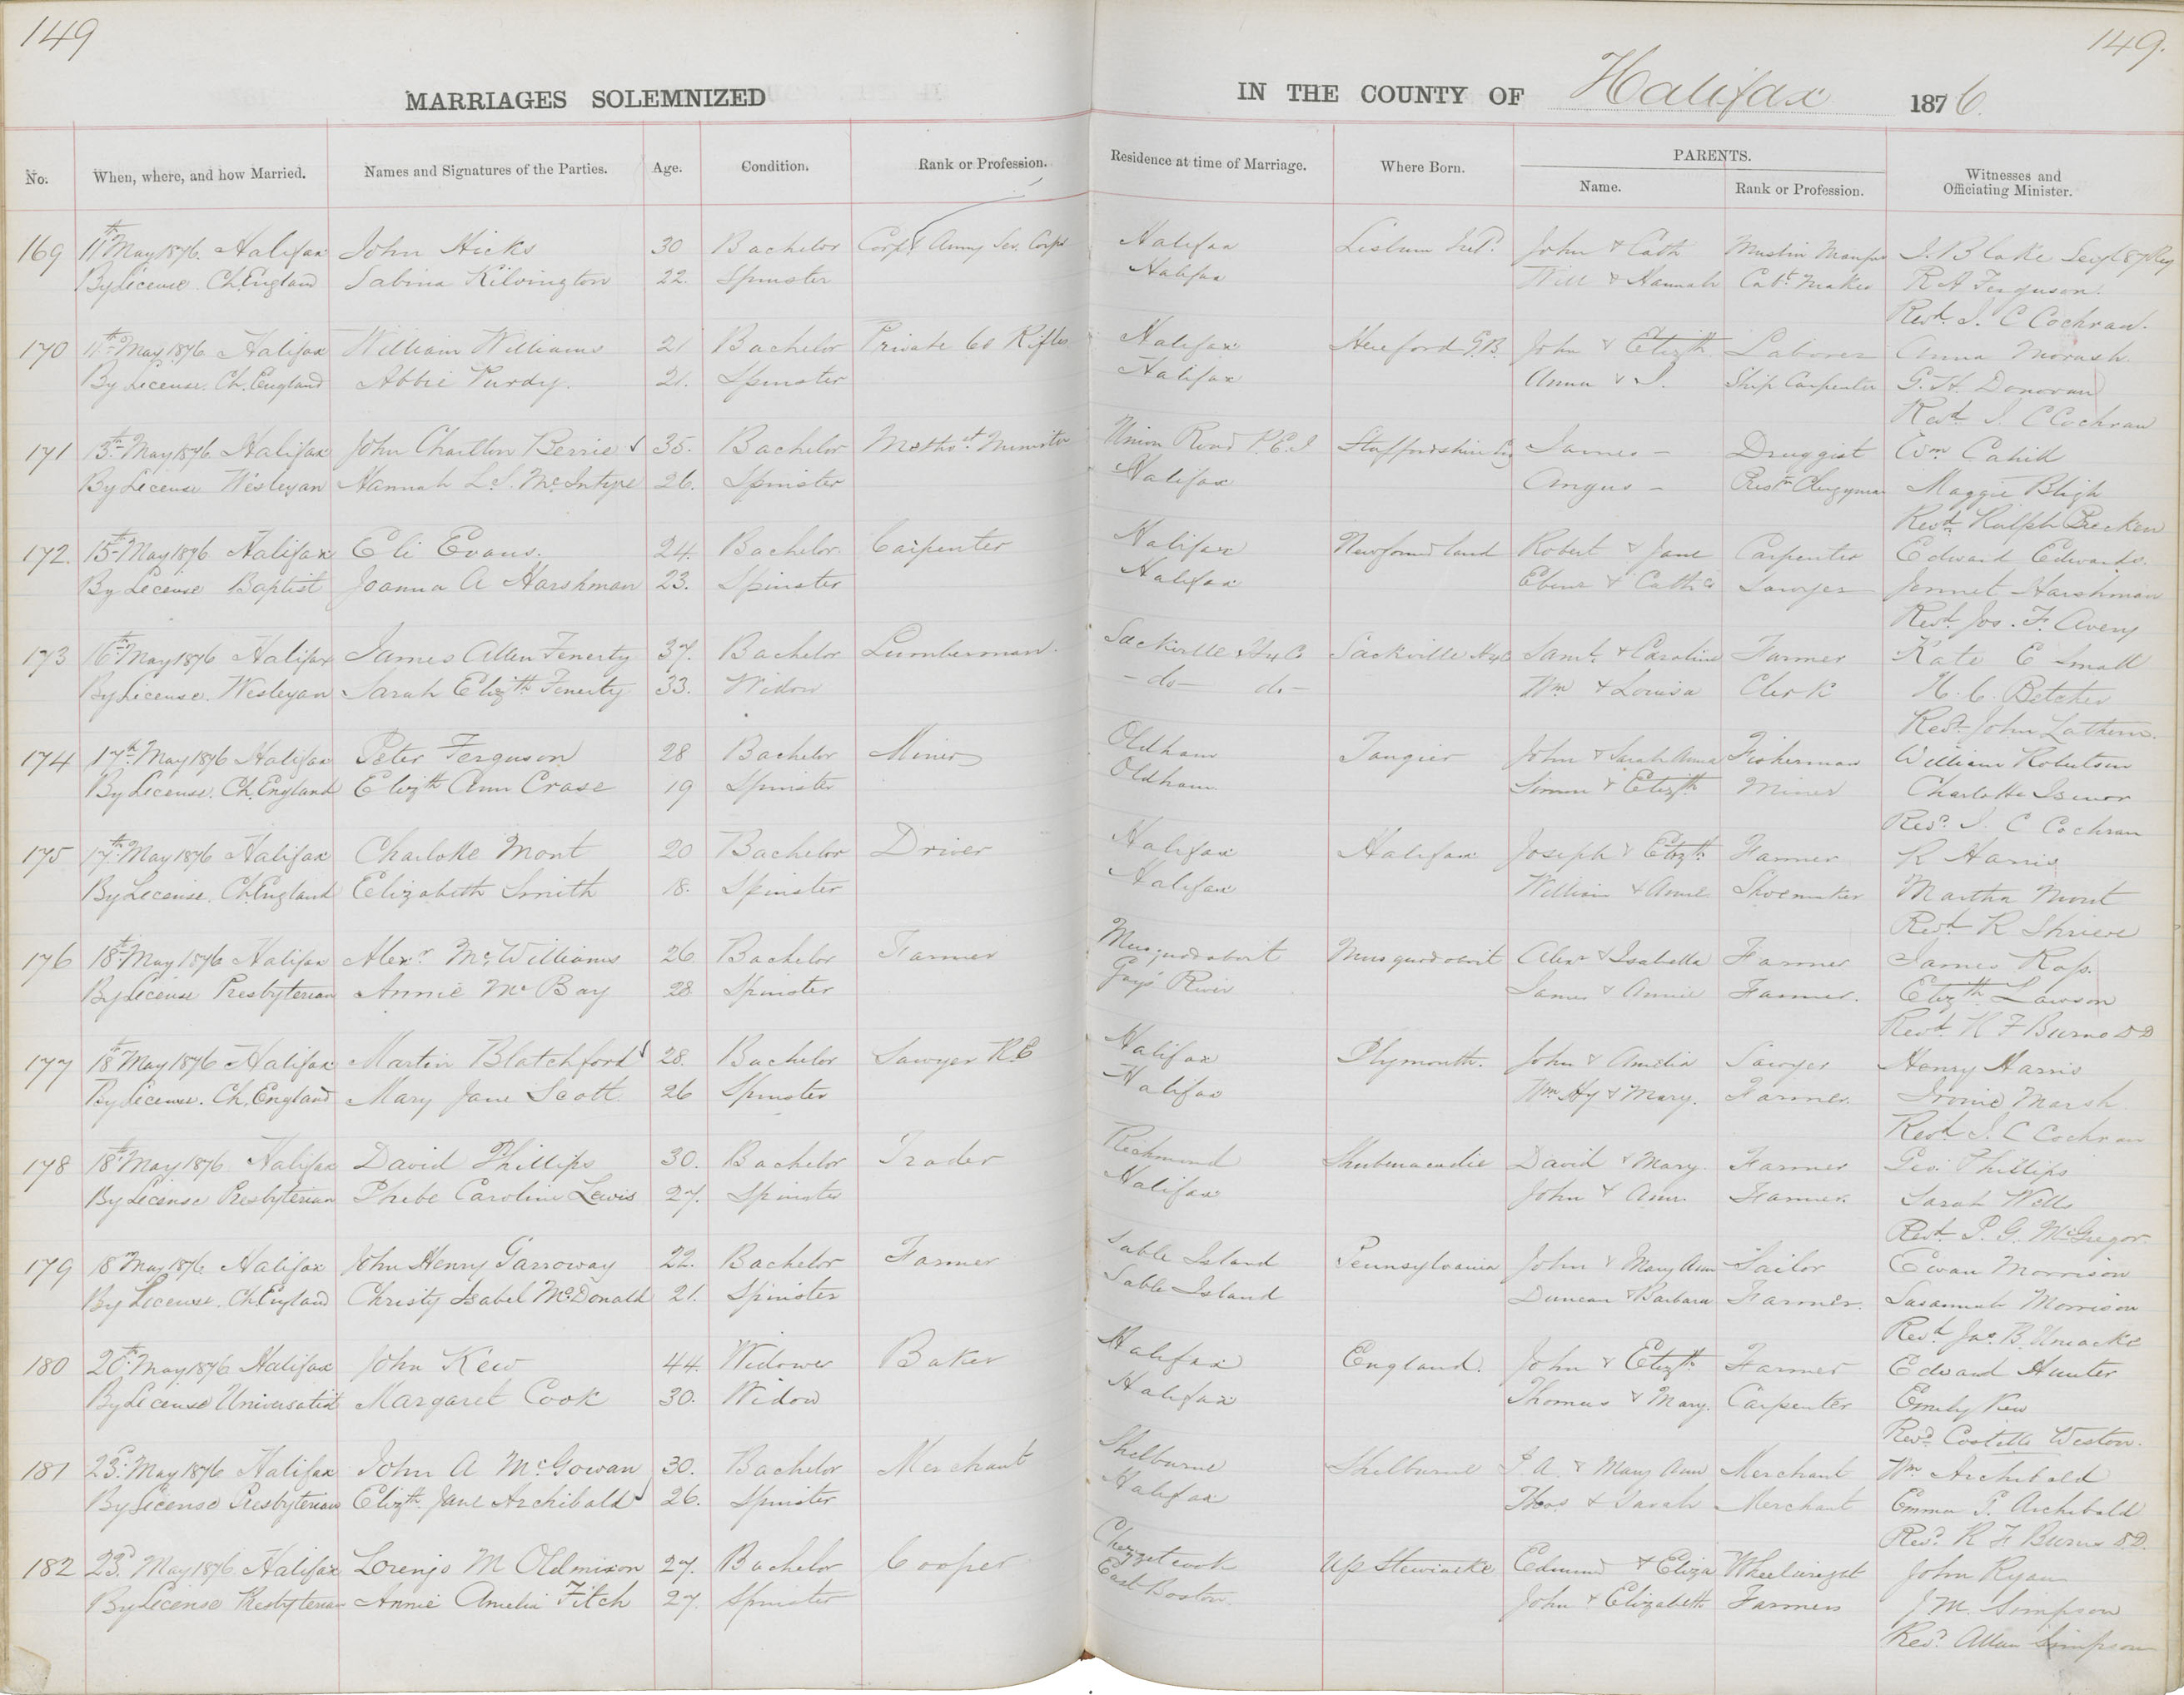 149
149.
MARRIAGES SOLEMNIZED IN THE COUNTY OF Halifax 1876.
No. When, where, and how Married. Names and Signatures of the Parties. Age. Condition. Rank or Profession. Residence at time of Marriage. Where Born. PARENTS. Witnesses and Officiating Minister.
Name. Rank or Profession.
169 11th May 1876. Halifax John Hicks 30 Bachelor Corpl Army Ser. Corps Halifax Lisburn Irel. John & Cath Muslin J. Blake Sergt 87 Reg
By License. Ch. England Sabina Kilvington 22. Spinster Halifax Will & Hannah Cabt. Maker R A Ferguson.
Revd. J. C Cochran.
170 11th May 1876 Halifax William Williams 21 Bachelor Private 60 Rifles Halifax Hereford G.B. John & Elizth Laborer Anna Morash.
By License. Ch. England Abbie Purdy. 21. Spinster Halifax Anna & J. Ship Carpenter G. H. Donovan
Revd J. C Cochran
171 13th May 1876 Halifax John Charlton Berrie 35. Bachelor Metho.st Minister Union Road P.E.I Staffordshire James - Druggist Wm Cahill
By License Wesleyan Hannah L. S. McIntyre 26. Spinster Halifax Angus - Presn Clergyman Maggie Bligh
Revd Ralph Brecken
172. 15th May 1876 Halifax Eli Evans. 24. Bachelor Carpenter Halifax Newfoundland Robert & Jane Carpenter Edward Edwards.
By License Baptist Joanna A Harshman 23. Spinster Halifax Ebenr & Cathe Sawyer Jennet Harshman
Revd. Jos. F. Avery
173 16th May 1876 Halifax James Allen Fenerty 37. Bachelor Lumberman. Sackville Hx Co Sackville Hx Co Saml. & Caroline Farmer Kate E Small
By License. Wesleyan Sarah Elizth Fenerty 33. Widow - do - do - Wm & Louisa Clerk H. C. Betcher
Revd. John Lathern.
174 17th May 1876 Halifax Peter Ferguson 28 Bachelor Miner Oldham Tangier John & Sarah Anna Fisherman William Robertson
By License. Ch. England Elizth Ann Crase 19 Spinster Oldham Simon & Elizth Miner Charlotte Isenor
Revd. J. C Cochran
175 17th May 1876 Halifax Charlotte Mont 20 Bachelor Driver Halifax Halifax Joseph & Elizth Farmer R Harris
By License. Ch England Elizabeth Smith 18. Spinster Halifax William & Anne Shoemaker Martha Mont
Revd. R Shrieve
176 18th May 1876 Halifax Alexr. McWilliams 26 Bachelor Farmer Musquodoboit Musquodoboit Alexr & Isabella Farmer James Ross.
By License Presbyterian Annie McBay 28 Spinster Gays River James & Annie Farmer. Elizth Lawson
Revd. R F Burns DD
177 18th May 1876 Halifax Martin Blatchford 28. Bachelor Sawyer R.E Halifax Plymouth. John & Amelia Sawyer Henry Harris
By License. Ch. England Mary Jane Scott. 26 Spinster Halifax Wm Hy & Mary. Farmer. Marsh
Revd. J. C Cochran
178 18th May 1876. Halifax David Phillips 30. Bachelor Trader Richmond Shubenacadie David & Mary. Farmer Geo: Phillips
By License Presbyterian Phebe Caroline Lewis 27. Spinster Halifax John & Ann. Farmer. Sarah Wells
Revd. P. G. McGregor.
179 18 May 1876 Halifax John Henry Garroway 22. Bachelor Farmer Sable Island Pennsylvania John & Mary Ann Sailor Ewan Morrison
By License. Ch. England Christy Isabel McDonald 21. Spinster Sable Island Duncan & Barbara Farmer. Susannah Morrison
Revd. Jas. B. Uniacke
180 20th May 1876 Halifax John Kew 44. Widower Baker Halifax England. John & Elizth Farmer Edward Hunter
By License Universalist Margaret Cook 30. Widow Halifax Thomas & Mary. Carpenter Emily Kew
Revd. Costello Weston.
181 23d. May 1876 Halifax John A McGowan 30. Bachelor Merchant Shelburne Shelburne & Mary Ann Merchant Wm Archibald
By License Presbyterian Elizth. Jane Archibald 26. Spinster Halifax Thos & Sarah Merchant Emma Archibald
Revd. R F Burns D.D.
182 23d. May 1876. Halifax Lorenzo M Oldmixon 27. Bachelor Cooper Chezzetcook Up Stewiacke Edmund & Eliza Wheelwright John Ryan
By License Presbyterian Annie Amelia Fitch 27. Spinster East Boston. John & Elizabeth Farmers J M. Simpson
Revd. Allan Simpson